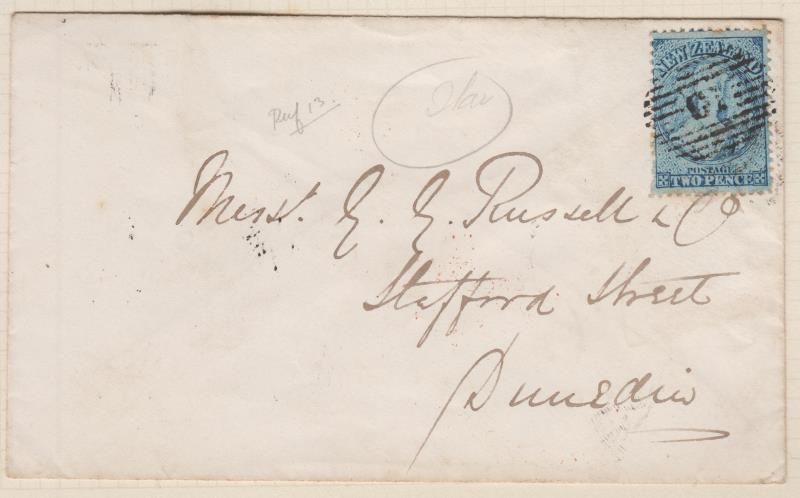 NEW ZEALAND
POSTAGE
TWO PENCE
Perf 13.
Messrs. G. G. Russell & Co
Stafford Street
Dunedin